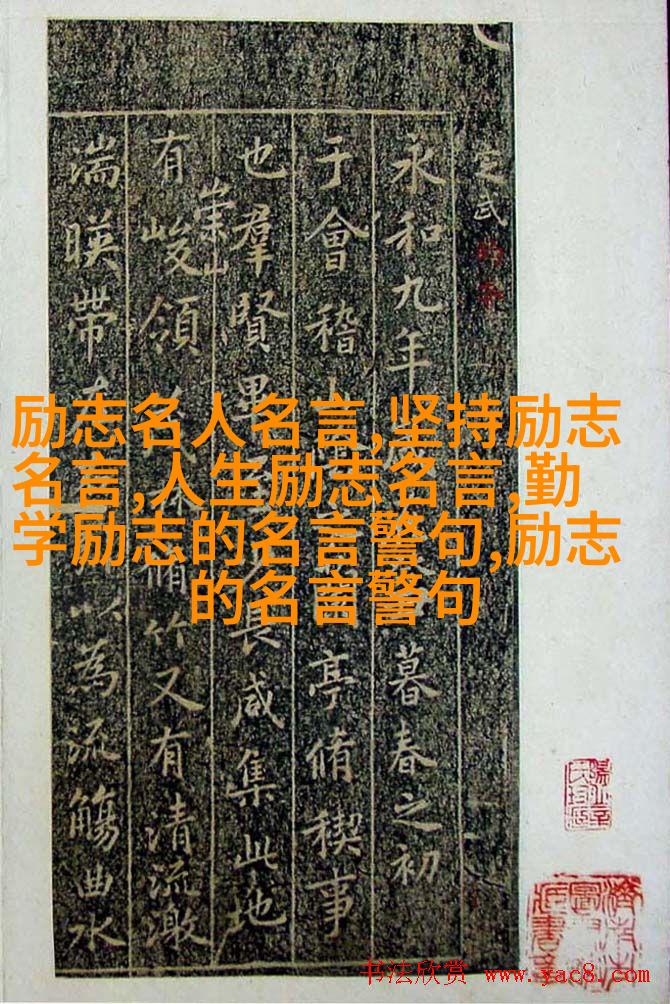 定武
永和九年 暮春之初
于會稽 亭脩稧事
也羣賢畢 長咸集此地
有崇山峻領 脩竹又有清流激
湍暎帶左 以為流觴曲水
励志名人名言,坚持励志
名言,人生励志名言,勤
学励志的名言警句,励志
的名言警句
书法欣赏 www.yac8.com